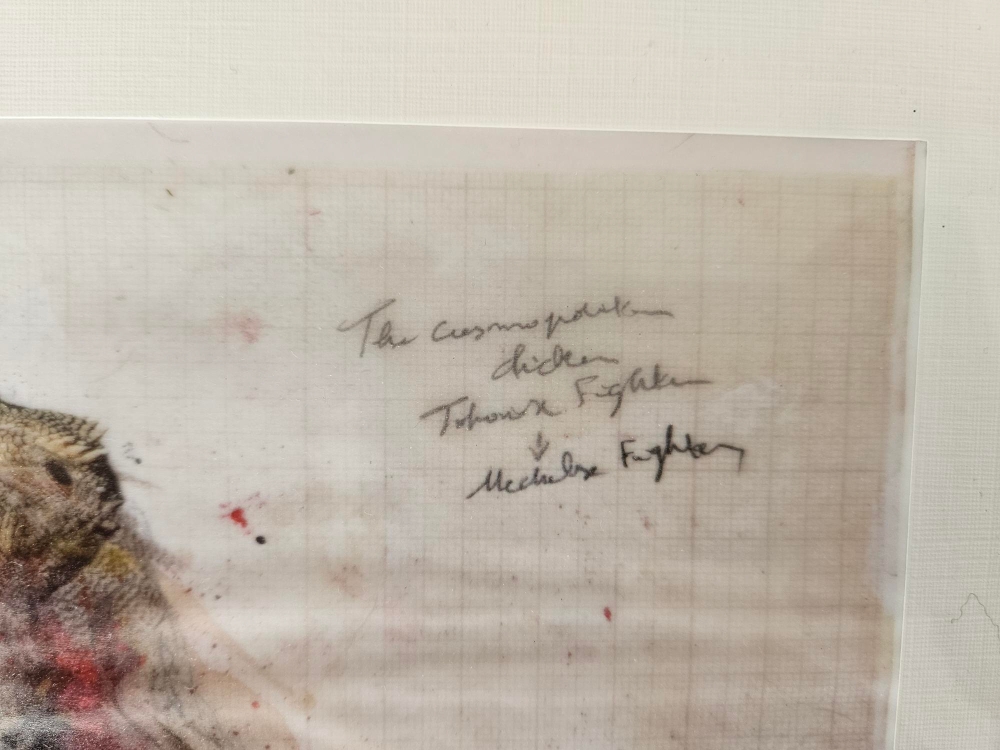 The cosmopolitan
chicken
Fighter
Mechelse Fighter